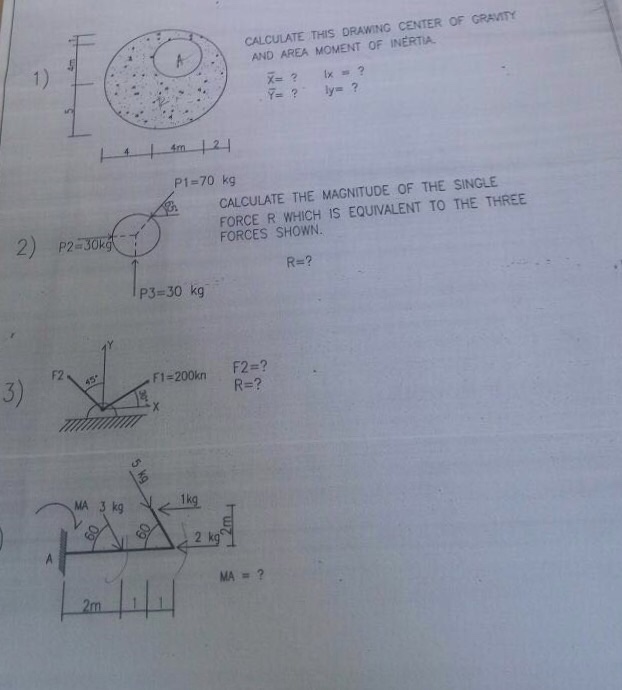 1)
CALCULATE THIS DRAWING CENTER OF GRAVITY
AND AREA MOMENT OF INERTIA.
X̄= ? Ix = ?
Ȳ= ? Iy= ?
A
5
4 4m 2
2)
P1=70 kg
P2=30kg
P3=30 kg
CALCULATE THE MAGNITUDE OF THE SINGLE
FORCE R WHICH IS EQUIVALENT TO THE THREE
FORCES SHOWN.
R=?
3)
Y
F2
45°
F1=200kn
30°
X
F2=?
R=?
5 kg
MA 3 kg
1kg
60
60
2 kg
2m
A
MA = ?
2m 1 1